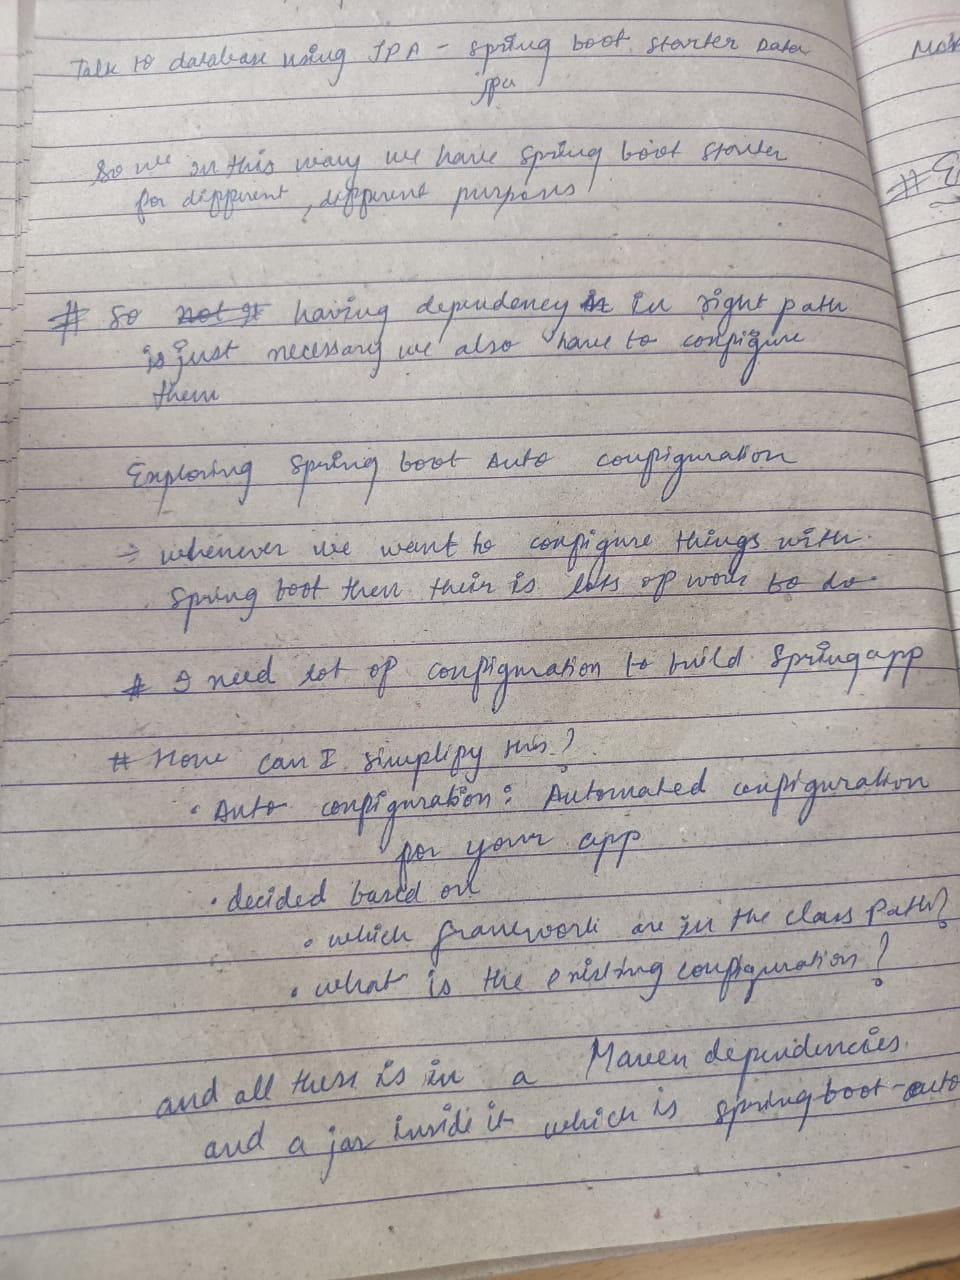 Talk to database using JPA - spring boot starter Data
jpa
So we in this way we have spring boot starter
for different, different purposes
# So not it having dependency in in right path
is just necessary we also have to configure
them
Exploring Spring boot Auto configuration
→ whenever we want to configure things with
Spring boot then their is lots of work to do
# I need lot of configuration to build Spring app
# How can I simplify this?
• Auto configuration: Automated configuration
for your app
• decided based on
• which framework are in the class path?
• what is the existing configuration?
and all these is in a Maven dependencies
and a jar inside it which is spring-boot-auto
# E